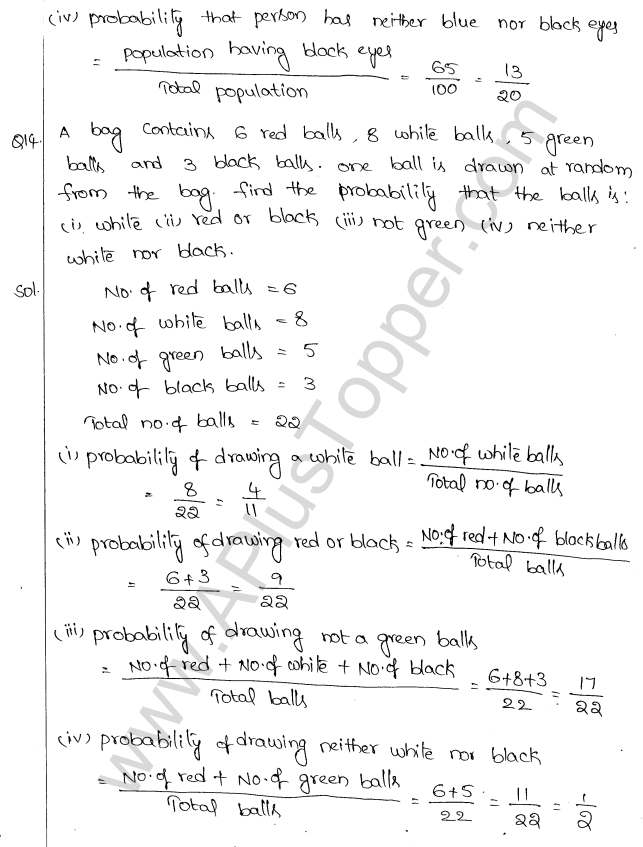 (iv) probability that person has neither blue nor black eyes
= population having black eyes / Total population = 65/100 = 13/20
Q14. A bag contains 6 red balls, 8 white balls, 5 green
balls and 3 black balls. one ball is drawn at random
from the bag. find the probability that the balls is:
(i) white (ii) red or black (iii) not green (iv) neither
white nor black.
Sol. No. of red balls = 6
No. of white balls = 8
No. of green balls = 5
No. of black balls = 3
Total no. of balls = 22
(i) probability of drawing a white ball = No. of white balls / Total no. of balls
= 8/22 = 4/11
(ii) probability of drawing red or black = No. of red + No. of black balls / Total balls
= 6+3/22 = 9/22
(iii) probability of drawing not a green balls
= No. of red + No. of white + No. of black / Total balls = 6+8+3/22 = 17/22
(iv) probability of drawing neither white nor black
= No. of red + No. of green balls / Total balls = 6+5/22 = 11/22 = 1/2
www.APlusTopper.com